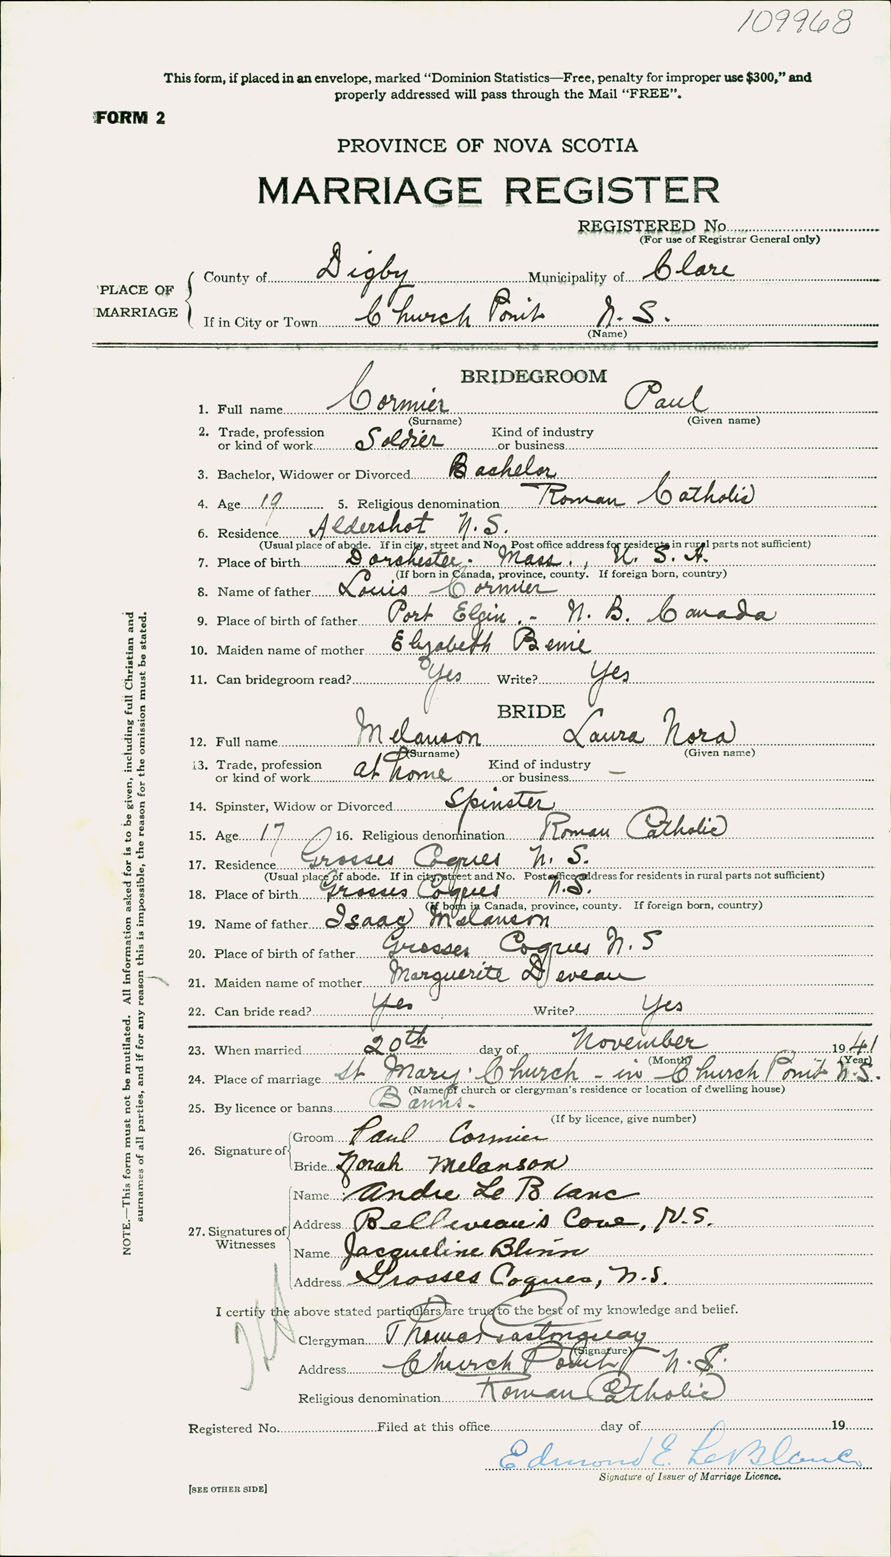 109968
This form, if placed in an envelope, marked "Dominion Statistics—Free, penalty for improper use $300," and
properly addressed will pass through the Mail "FREE".
FORM 2
PROVINCE OF NOVA SCOTIA
MARRIAGE REGISTER
REGISTERED No.
(For use of Registrar General only)
PLACE OF MARRIAGE
County of Digby Municipality of Clare
If in City or Town Church Point N. S.
(Name)
BRIDEGROOM
1. Full name Cormier Paul
(Surname) (Given name)
2. Trade, profession or kind of work Soldier Kind of industry or business
3. Bachelor, Widower or Divorced Bachelor
4. Age 19 5. Religious denomination Roman Catholic
6. Residence Aldershot N.S.
(Usual place of abode. If in city, street and No. Post office address for residents in rural parts not sufficient)
7. Place of birth Dorchester. Mass., U. S. A.
(If born in Canada, province, county. If foreign born, country)
8. Name of father Louis Cormier
9. Place of birth of father Port Elgin. - N. B. Canada
10. Maiden name of mother Elizabeth
11. Can bridegroom read? Yes Write? Yes
BRIDE
12. Full name Melanson Laura Nora
(Surname) (Given name)
13. Trade, profession or kind of work at home Kind of industry or business —
14. Spinster, Widow or Divorced Spinster
15. Age 17 16. Religious denomination Roman Catholic
17. Residence Grosses Coques N. S.
(Usual place of abode. If in city, street and No. Post office address for residents in rural parts not sufficient)
18. Place of birth Grosses Coques N.S.
(If born in Canada, province, county. If foreign born, country)
19. Name of father Isaac Melanson
20. Place of birth of father Grosses Coques N. S
21. Maiden name of mother Marguerite Deveau
22. Can bride read? Yes Write? Yes
23. When married 20th day of November 1941
(Month) (Year)
24. Place of marriage St Mary' Church - in Church Point N.S.
(Name of church or clergyman's residence or location of dwelling house)
25. By licence or banns Banns.
(If by licence, give number)
26. Signature of
Groom Paul Cormier
Bride Norah Melanson
27. Signatures of Witnesses
Name Andre Le Blanc
Address Belliveau's Cove, N.S.
Name Jacqueline Blinn
Address Grosses Coques, N.S.
I certify the above stated particulars are true to the best of my knowledge and belief.
Clergyman Thomas Castonguay
(Signature)
Address Church Point N. S.
Religious denomination Roman Catholic
Registered No. Filed at this office day of 19
Edmond E. LeBlanc
Signature of Issuer of Marriage Licence.
[SEE OTHER SIDE]
NOTE.—This form must not be mutilated. All information asked for is to be given, including full Christian and
surnames of all parties, and if for any reason this is impossible, the reason for the omission must be stated.